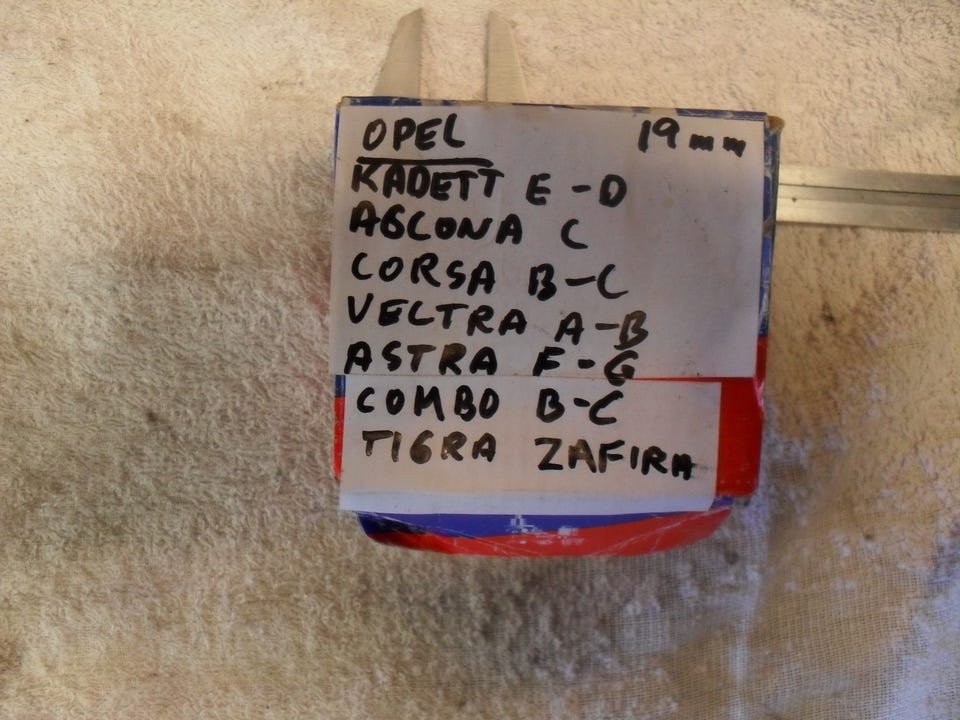 OPEL 19mm
KADETT E-D
AGCONA C
CORSA B-C
VECTRA A-B
ASTRA F-G
COMBO B-C
TIGRA ZAFIRA